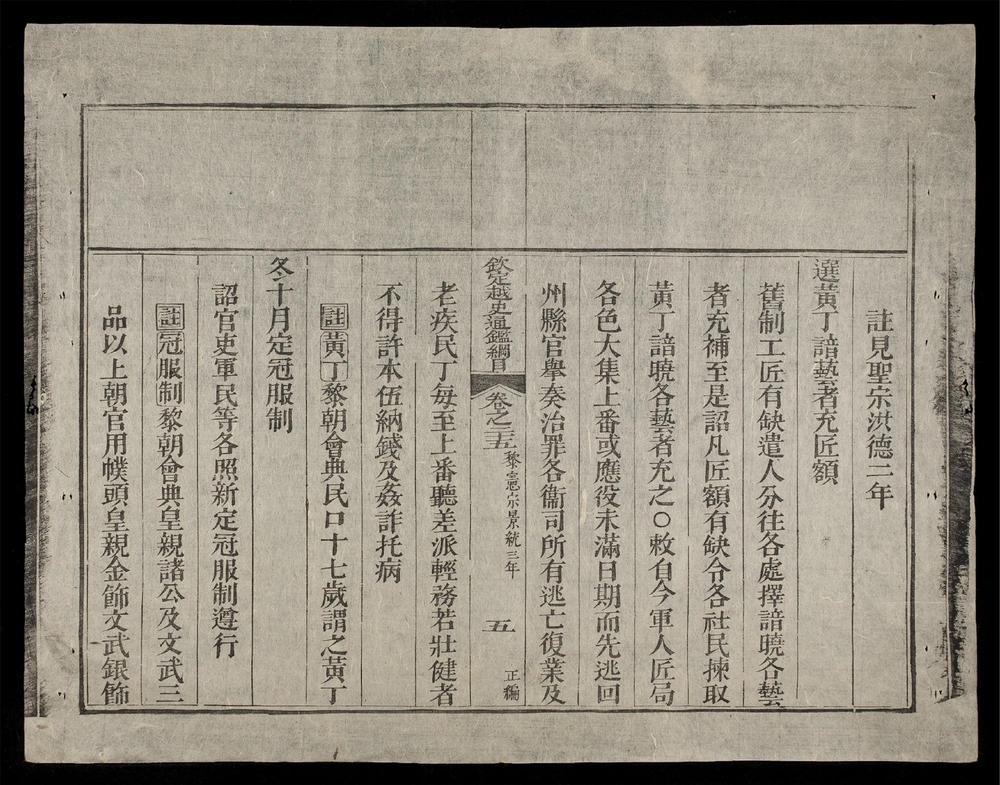 註見聖宗洪德二年
選黃丁諳藝者充匠額
舊制工匠有缺遣人分往各處擇諳曉各藝
者充補至是詔凡匠額有缺令各社民揀取
黃丁諳曉各藝者充之○敕自今軍人匠局
各色大集上番或應役未滿日期而先逃回
州縣官舉奏治罪各衞司所有逃亡復業及
欽定越史通鑑綱目 卷之二十五 黎憲宗景統三年 五 正編
老疾民丁每至上番聽差派輕務若壯健者
不得許本伍納錢及姦詐托病
註黃丁黎朝會典民口十七歲謂之黃丁
冬十月定冠服制
詔官吏軍民等各照新定冠服制遵行
註冠服制黎朝會典皇親諸公及文武三
品以上朝官用幞頭皇親金飾文武銀飾